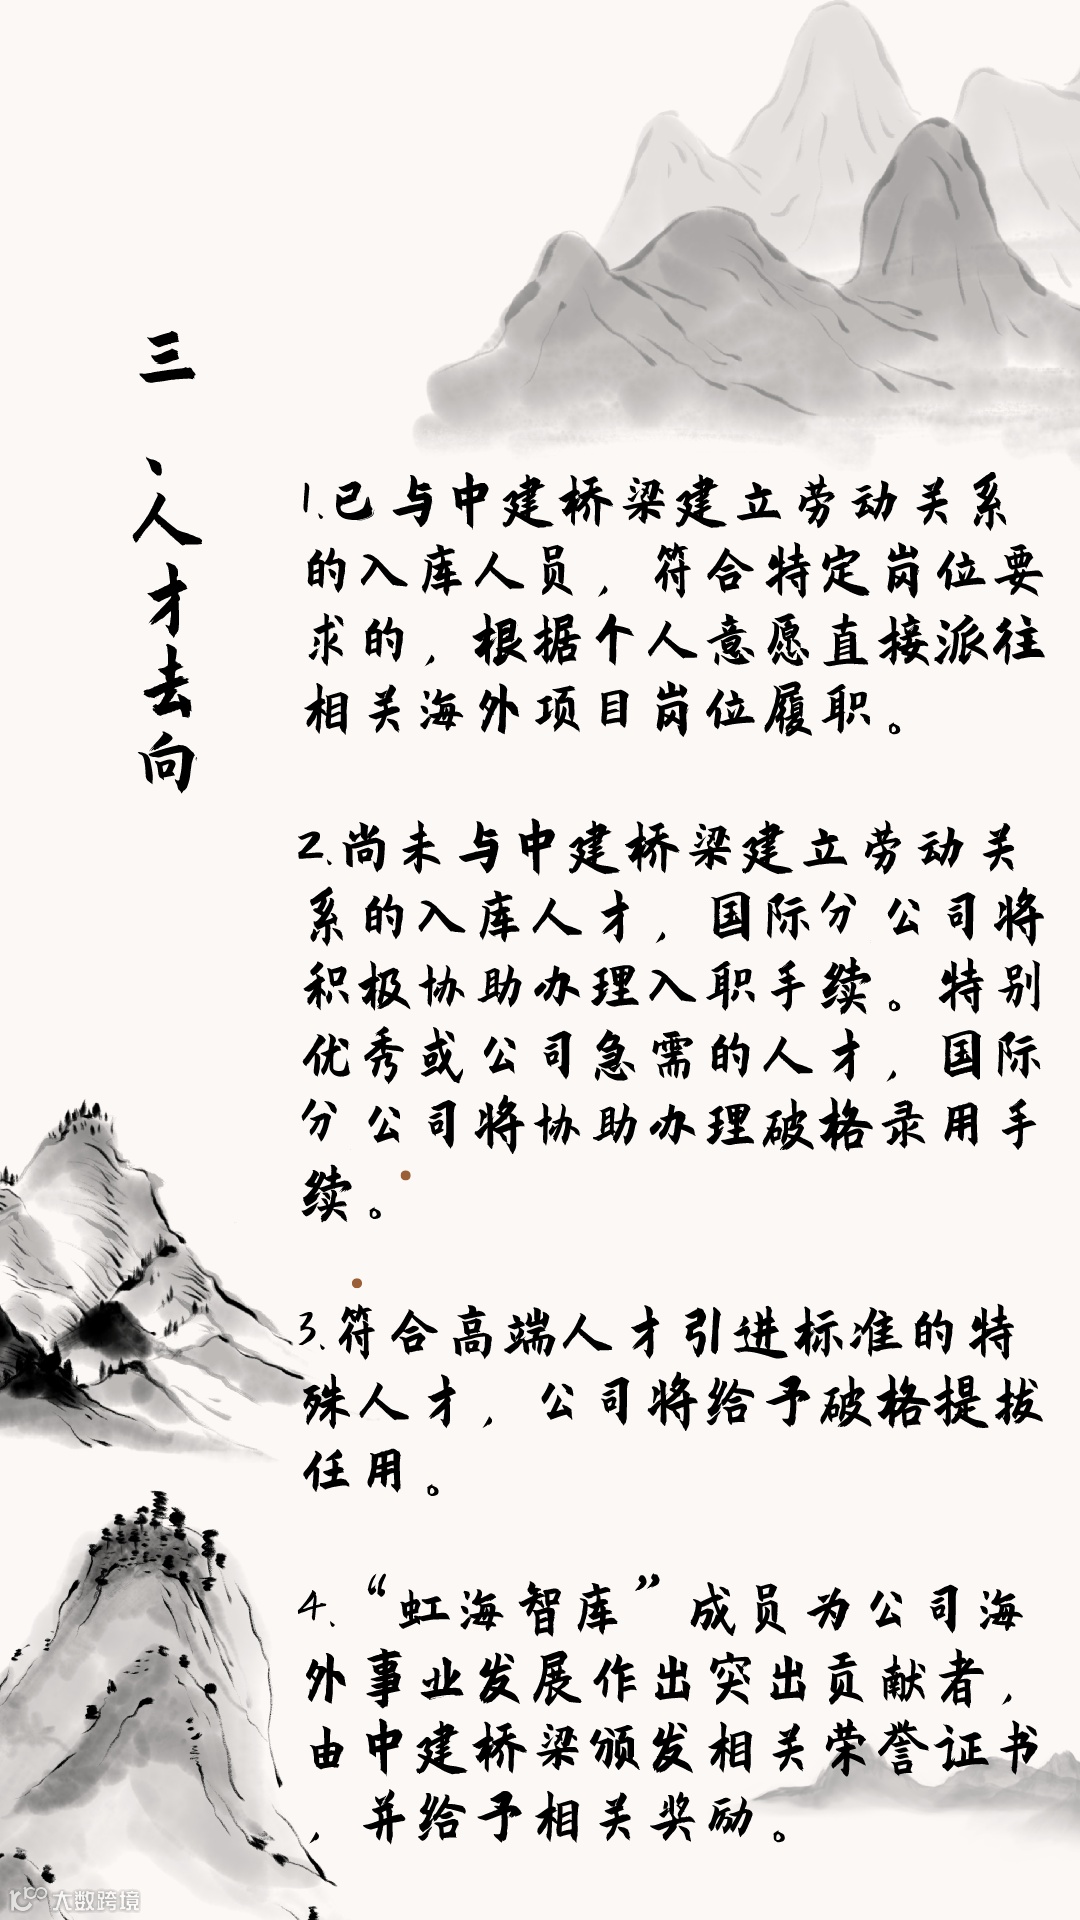 三、人才去向
1.已与中建桥梁建立劳动关系
的入库人员，符合特定岗位要
求的，根据个人意愿直接派往
相关海外项目岗位履职。
2.尚未与中建桥梁建立劳动关
系的入库人才，国际分公司将
积极协助办理入职手续。特别
优秀或公司急需的人才，国际
分公司将协助办理破格录用手
续。
3.符合高端人才引进标准的特
殊人才，公司将给予破格提拔
任用。
4.“虹海智库”成员为公司海
外事业发展作出突出贡献者，
由中建桥梁颁发相关荣誉证书
，并给予相关奖励。
大数跨境